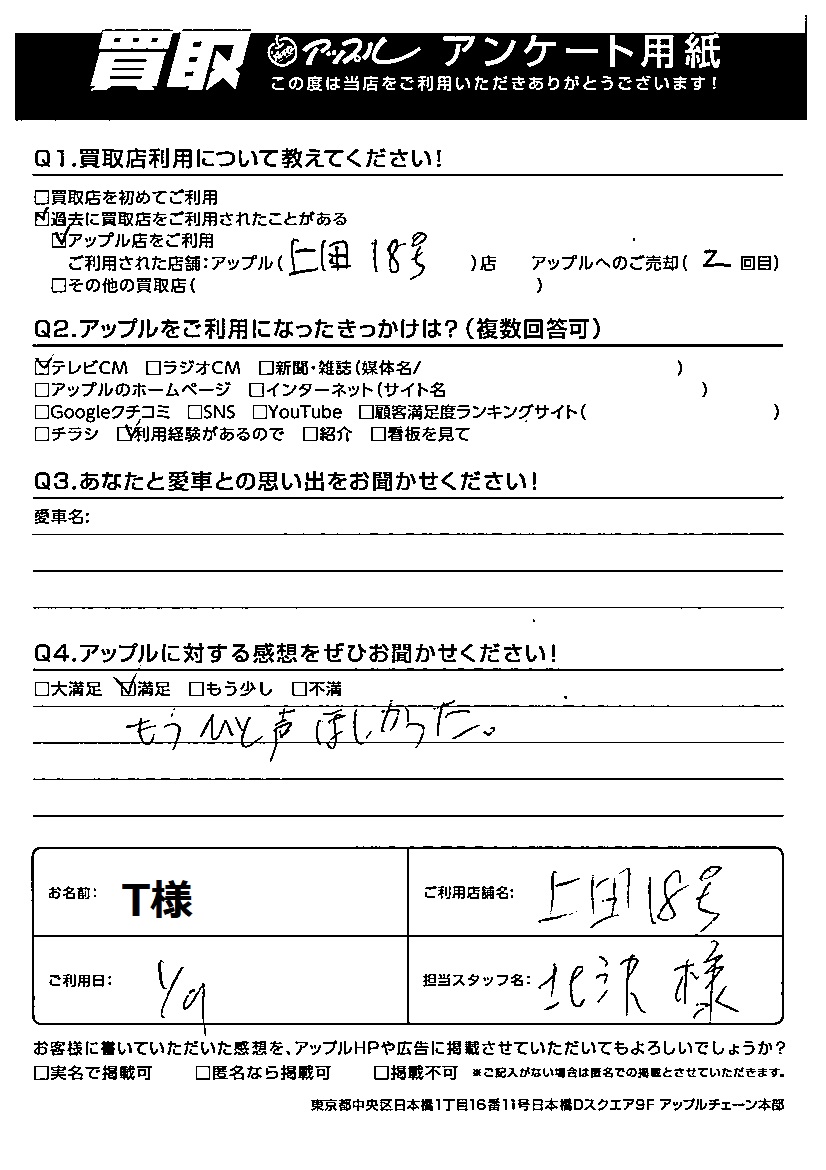 買取 アップル アンケート用紙
この度は当店をご利用いただきありがとうございます!
Q1.買取店利用について教えてください!
□買取店を初めてご利用
☑過去に買取店をご利用されたことがある
☑アップル店をご利用
ご利用された店舗:アップル(上田 18号)店 アップルへのご売却(2回目)
□その他の買取店( )
Q2.アップルをご利用になったきっかけは?(複数回答可)
☑テレビCM □ラジオCM □新聞・雑誌(媒体名/ )
□アップルのホームページ □インターネット(サイト名 )
□Googleクチコミ □SNS □YouTube □顧客満足度ランキングサイト( )
□チラシ ☑利用経験があるので □紹介 □看板を見て
Q3.あなたと愛車との思い出をお聞かせください!
愛車名:
Q4.アップルに対する感想をぜひお聞かせください!
□大満足 ☑満足 □もう少し □不満
もうひと声ほしかった。
お名前: T様 ご利用店舗名: 上田18号
ご利用日: 1/9 担当スタッフ名: 北沢 様
お客様に書いていただいた感想を、アップルHPや広告に掲載させていただいてもよろしいでしょうか?
□実名で掲載可 □匿名なら掲載可 □掲載不可 ※ご記入がない場合は匿名での掲載とさせていただきます。
東京都中央区日本橋1丁目16番11号日本橋Dスクエア9F アップルチェーン本部